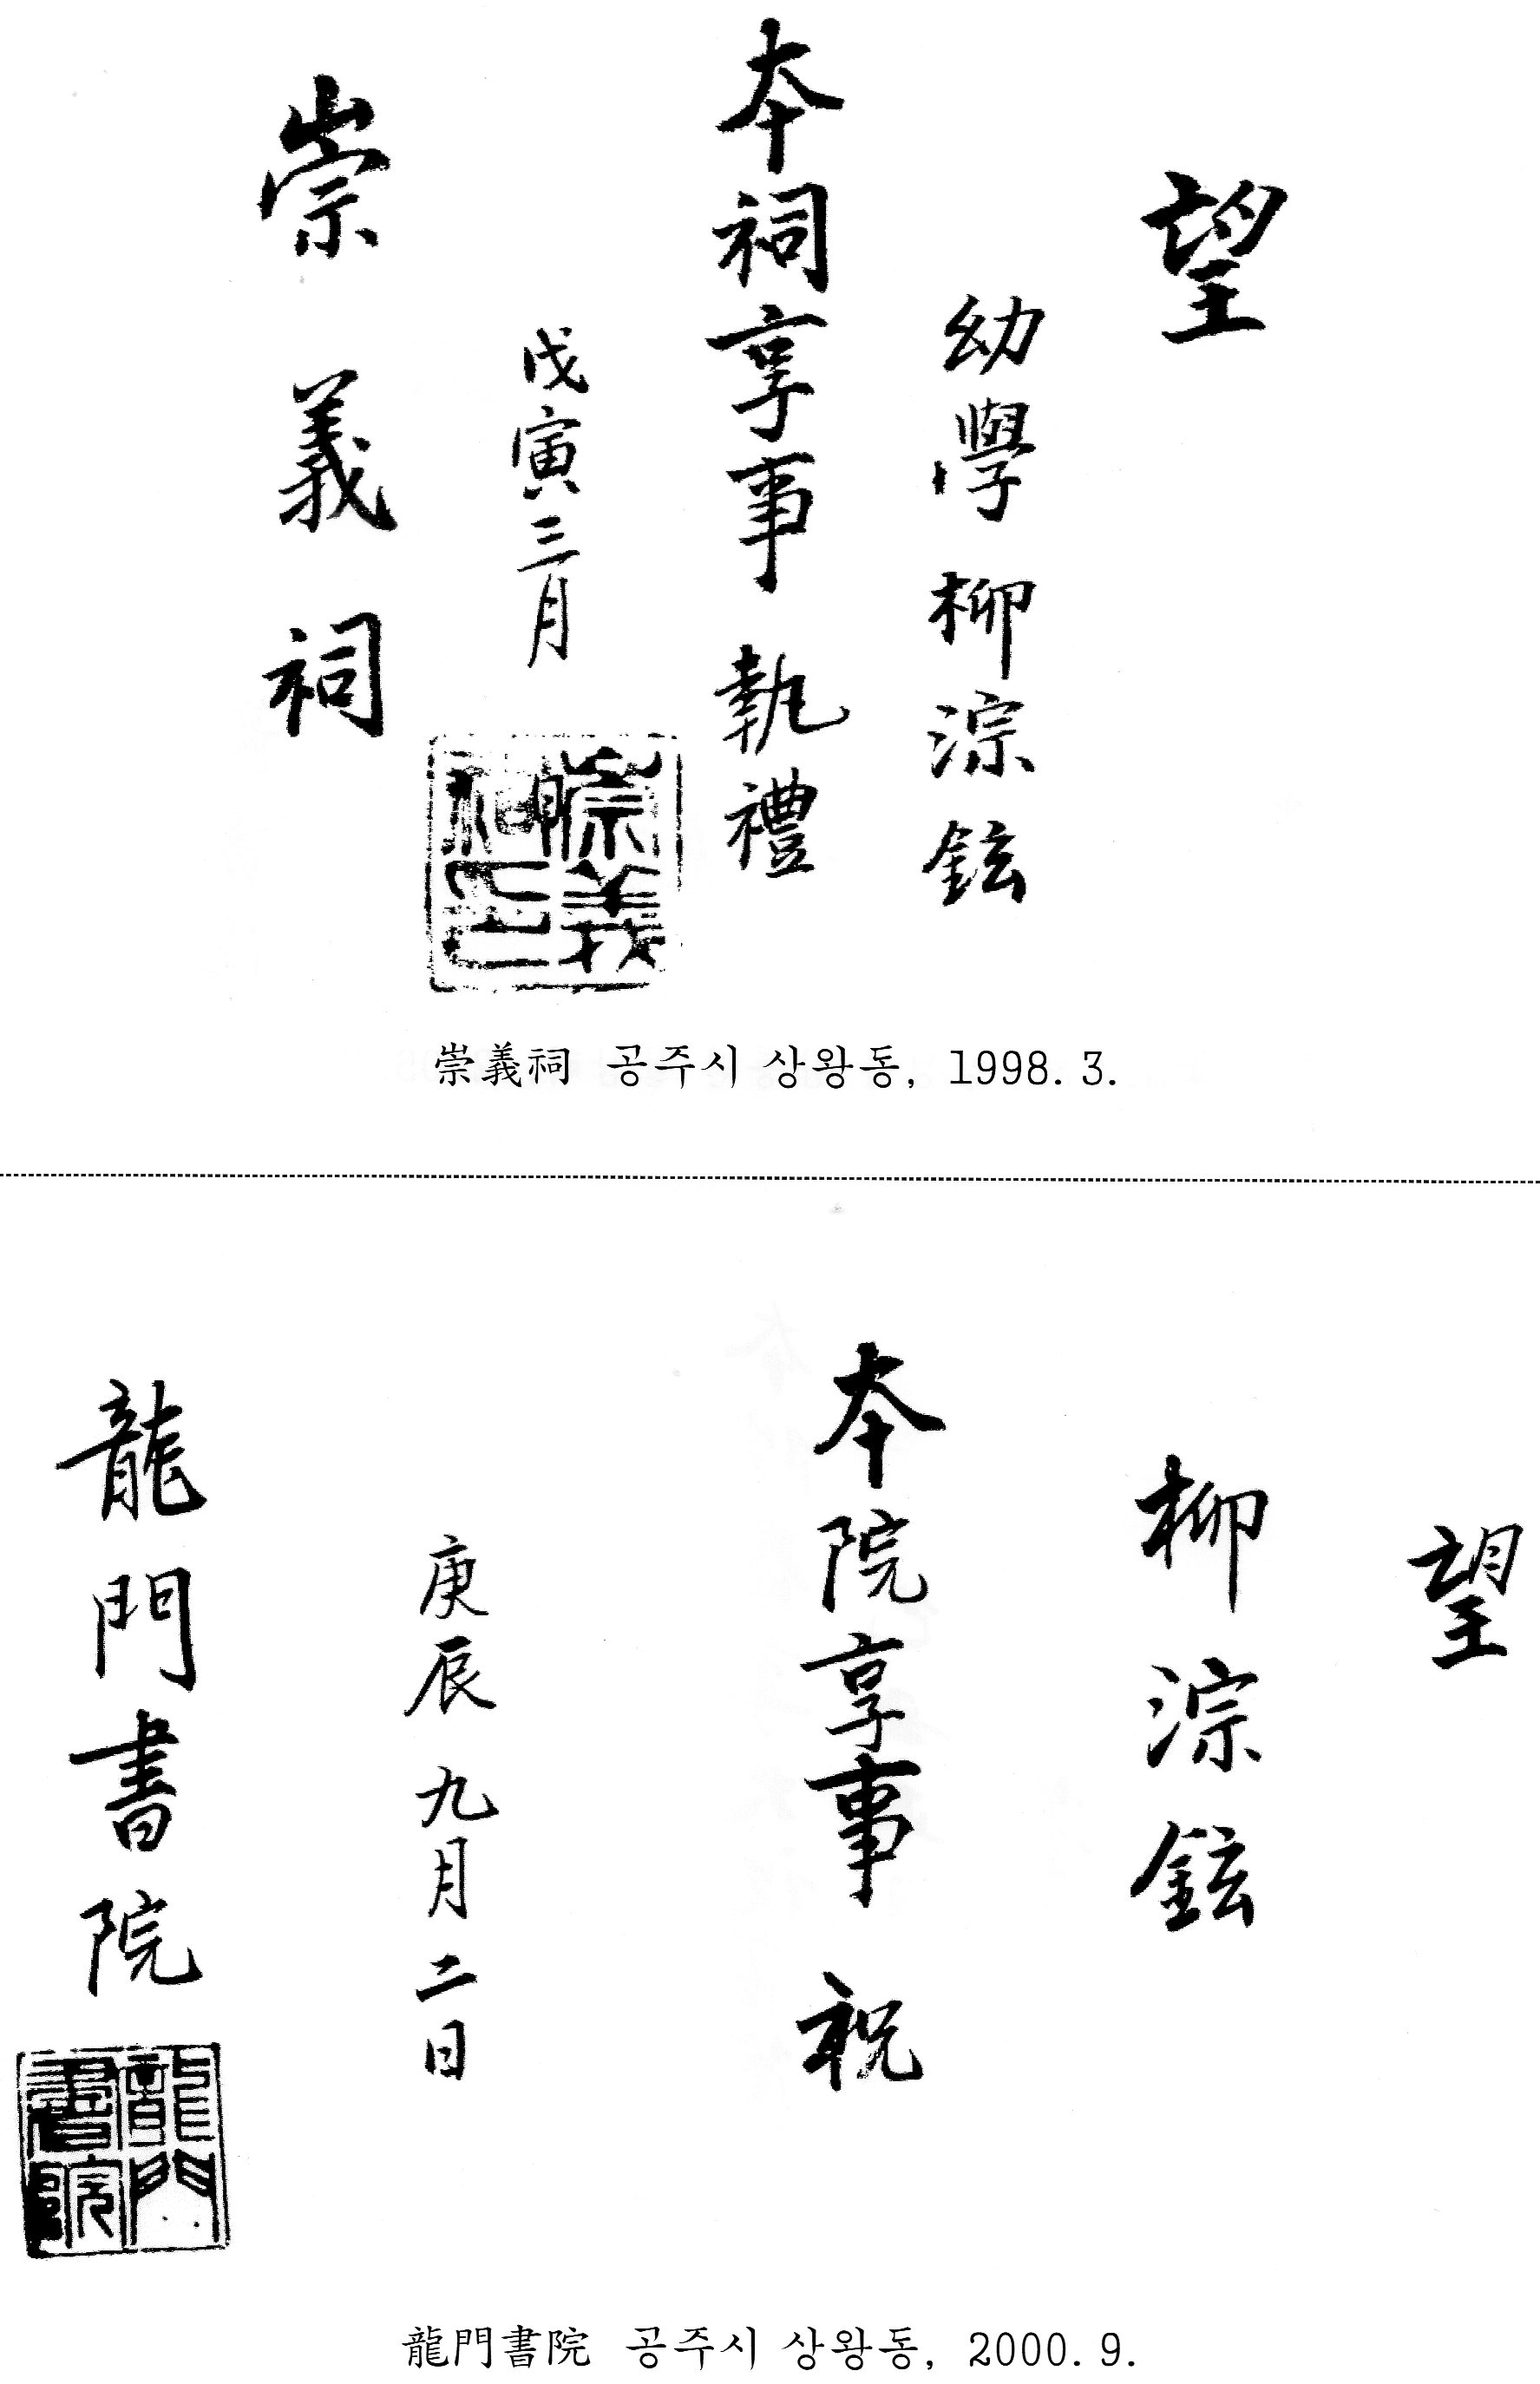 望
幼學 柳淙鉉
本祠享事 執禮
戊寅三月
崇義祠
崇義祠 공주시 상왕동, 1998. 3.
望
柳淙鉉
本院享事 祝
庚辰 九月 二日
龍門書院
龍門書院
龍門書院 공주시 상왕동, 2000. 9.